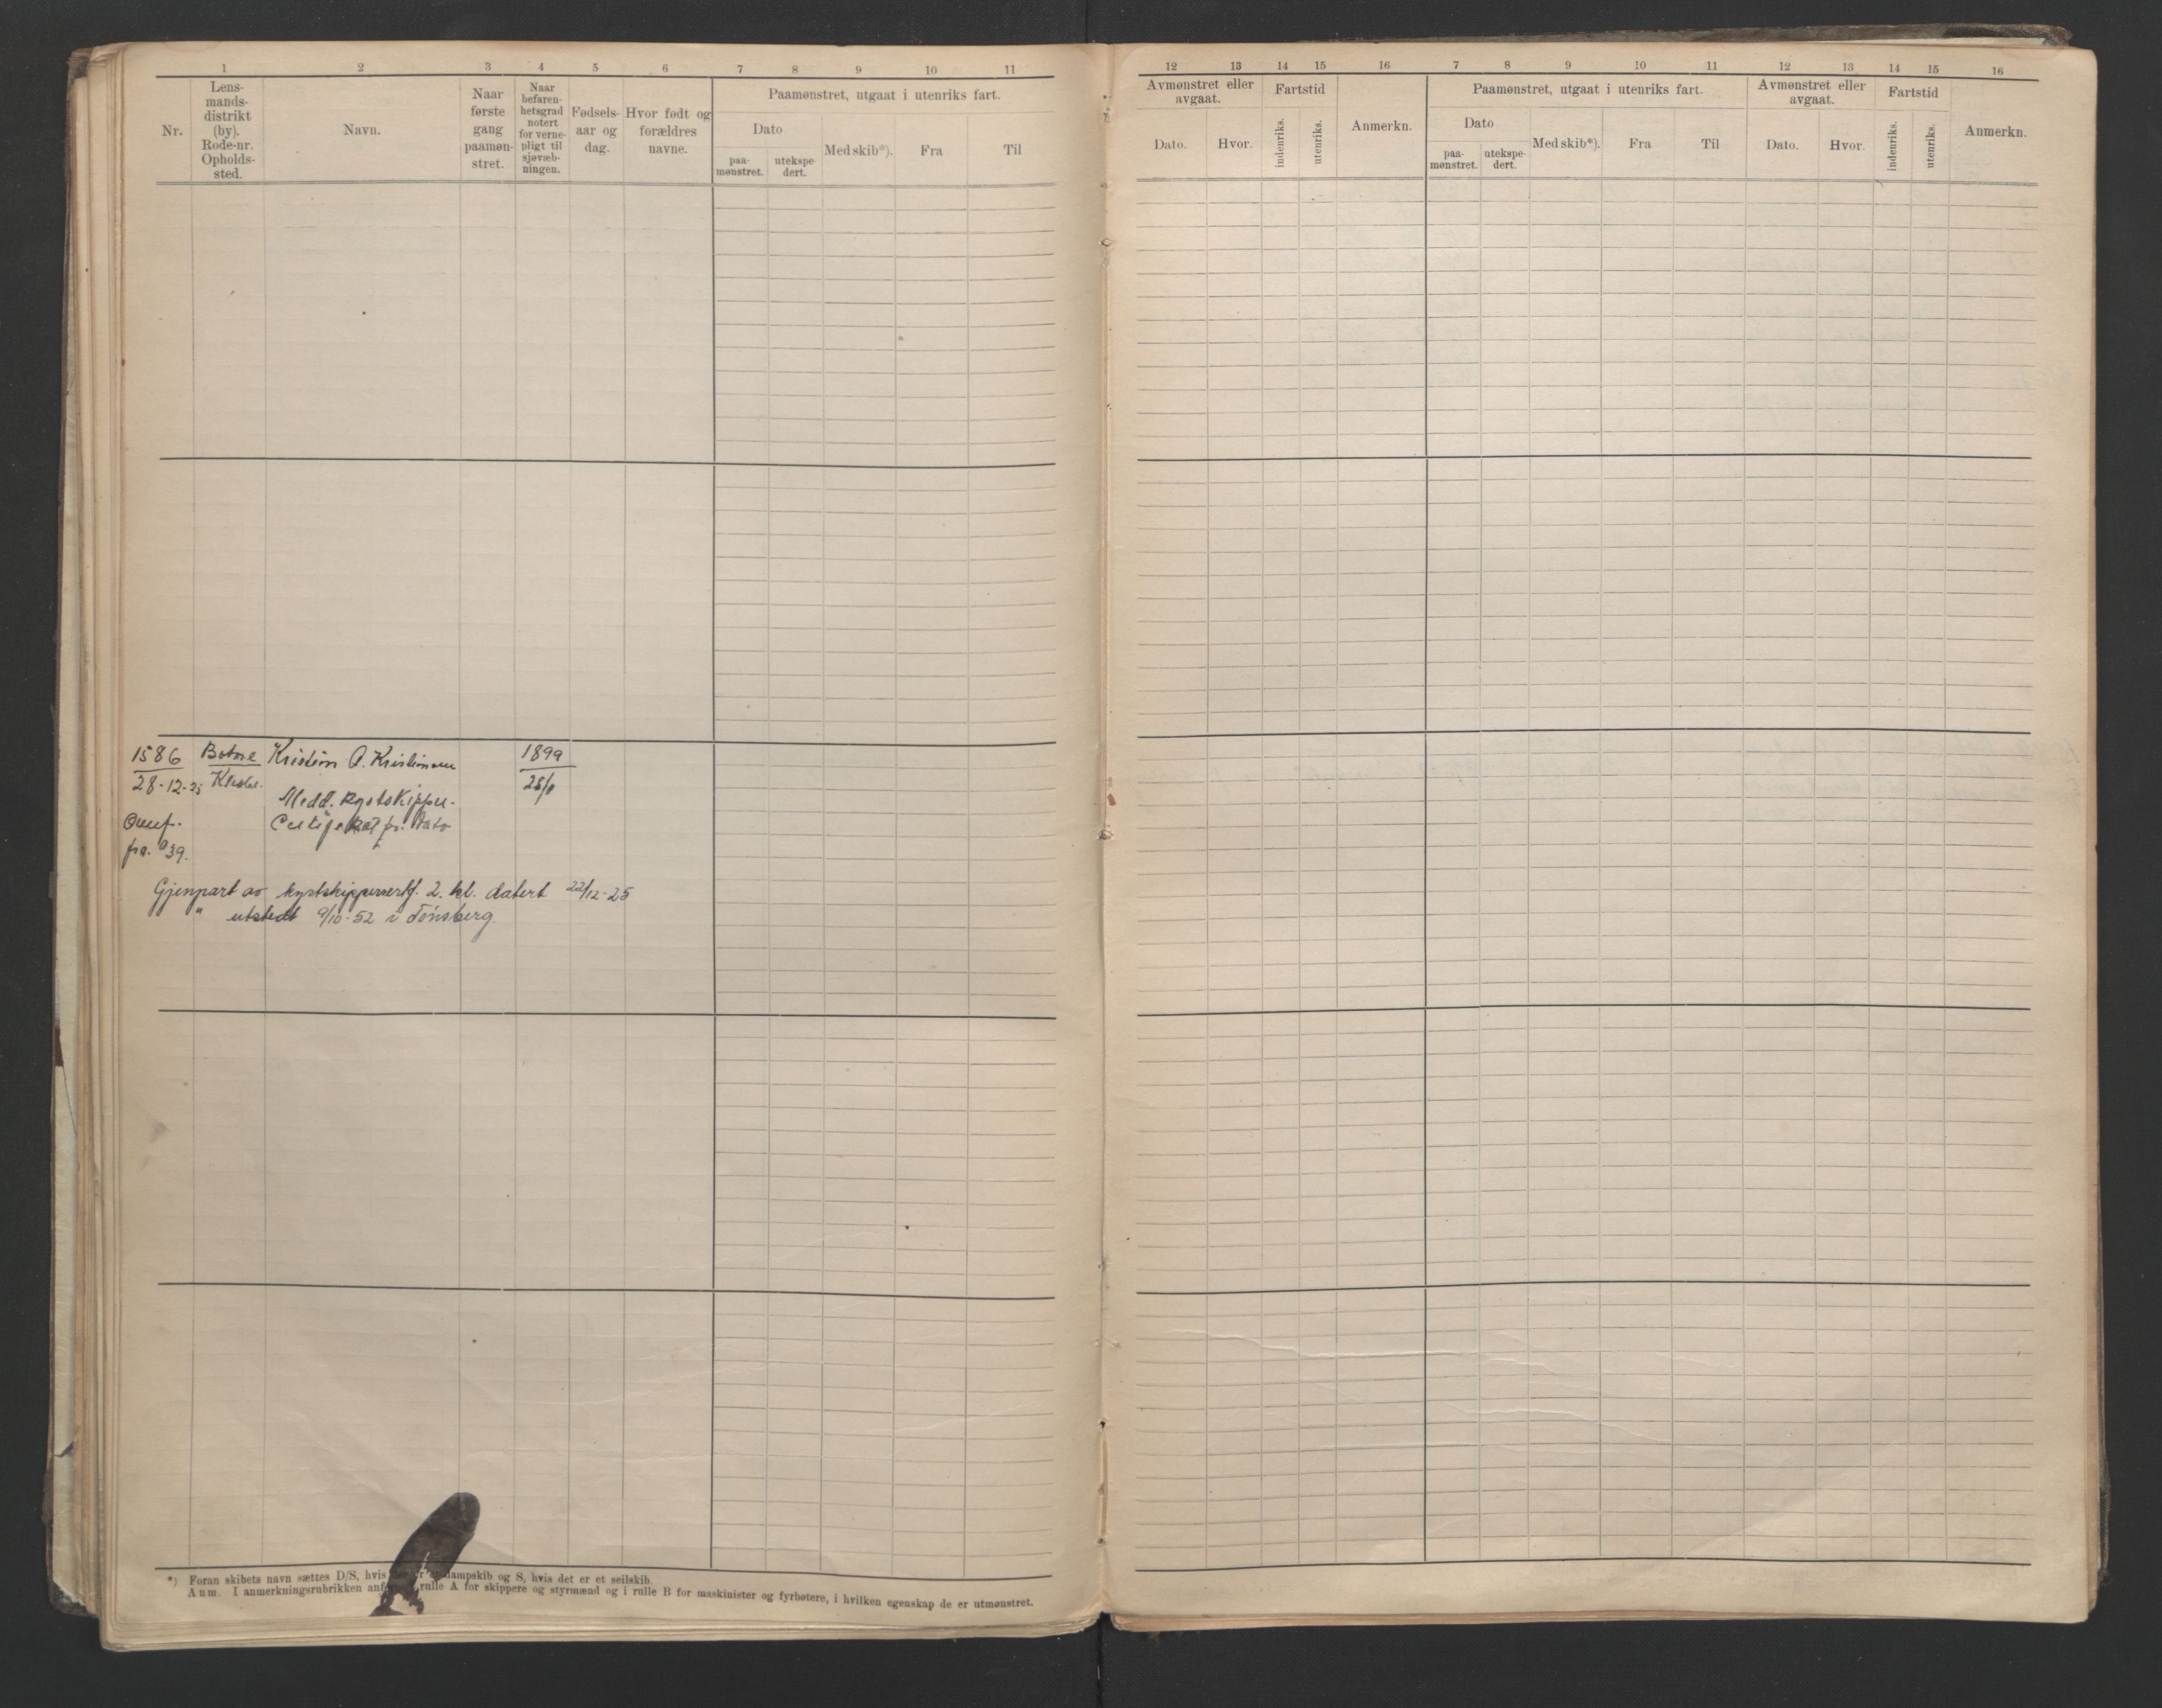 1 2 3 4 5 6 7 8 9 10 11
Nr.
Lens-
mands-
distrikt
(by).
Rode-nr.
Opholds-
sted.
Navn.
Naar
første
gang
paamøn-
stret.
Naar
befaren-
hetsgrad
notert
for verne-
pligt til
sjøvæb-
ningen.
Fødsels-
aar og
dag.
Hvor født og
forældres
navne.
Paamønstret, utgaat i utenriks fart.
Dato
paa-
mønstret.
utekspe-
dert.
Med skib*).
Fra
Til
12 13 14 15 16 7 8 9 10 11 12 13 14 15 16
Avmønstret eller
avgaat.
Dato.
Hvor.
Fartstid
indenriks.
utenriks.
Anmerkn.
Paamønstret, utgaat i utenriks fart.
Dato
paa-
mønstret.
utekspe-
dert.
Med skib*).
Fra
Til
Avmønstret eller
avgaat.
Dato.
Hvor.
Fartstid
indenriks.
utenriks.
Anmerkn.
1586 Botne 1899
28-12-25
Medd. Kystskipper-
Certifikat fr. Dato
fra. 39.
Gjenpart av kystskippersertf. 2. kl. datert 22/12-25
" utstedt 9/10-52 i Tønsberg.
*) Foran skibets navn sættes D/S, hvis dampskib og S, hvis det er et seilskib.
Anm. I anmerkningsrubrikken rulle A for skippere og styrmænd og i rulle B for maskinister og fyrbøtere, i hvilken egenskap de er utmønstret.